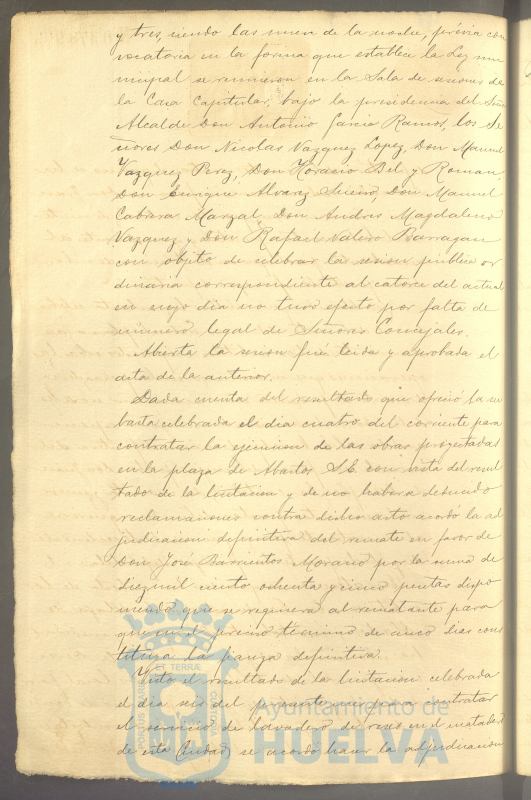 y tres, siendo las nueve de la noche, prévia con
vocatoria en la forma que establece la Ley mu
nicipal se reunieron en la Sala de sesiones de
la Casa Capitular, bajo la presidencia del Señor
Alcalde Don Antonio Garcia Ramos, los Se
ñores Don Nicolas Vazquez Lopez, Don Manuel
Vazquez Perez, Don Horacio Bel y Roman,
Don Enrique Alvarez Sueiro, Don Manuel
Cabrera Marzal, Don Andres Magdaleno
Vazquez y Don Rafael Valero Barragan
con objeto de celebrar la sesion publica or
dinaria correspondiente al catorce del actual
en cuyo dia no tuvo efecto por falta de
numero legal de Señores Concejales.
Abierta la sesion fué leida y aprobada el
acta de la anterior.
Dada cuenta del resultado que ofreció la su
basta celebrada el dia cuatro del corriente para
contratar la ejecucion de las obras proyectadas
en la plaza de Abastos S.E. con vista del resul
tado de la licitacion y de no haberse deducido
reclamaciones contra dicho acto acordó la ad
judicacion definitiva del remate en favor de
Don José Barrientos Morano por la suma de
diez mil ciento ochenta y cinco pesetas dispo
niendo que se requiera al rematante para
que en el preciso termino de cinco dias cons
tituya la fianza definitiva.
Visto el resultado de la licitacion celebrada
el dia seis del presente mes para contratar
el servicio de lavador de reses en el matadero
de esta Ciudad se acordó hacer la adjudicacion
PORTUS MARIS ET TERRÆ CUSTODIO
Ayuntamiento de
HUELVA